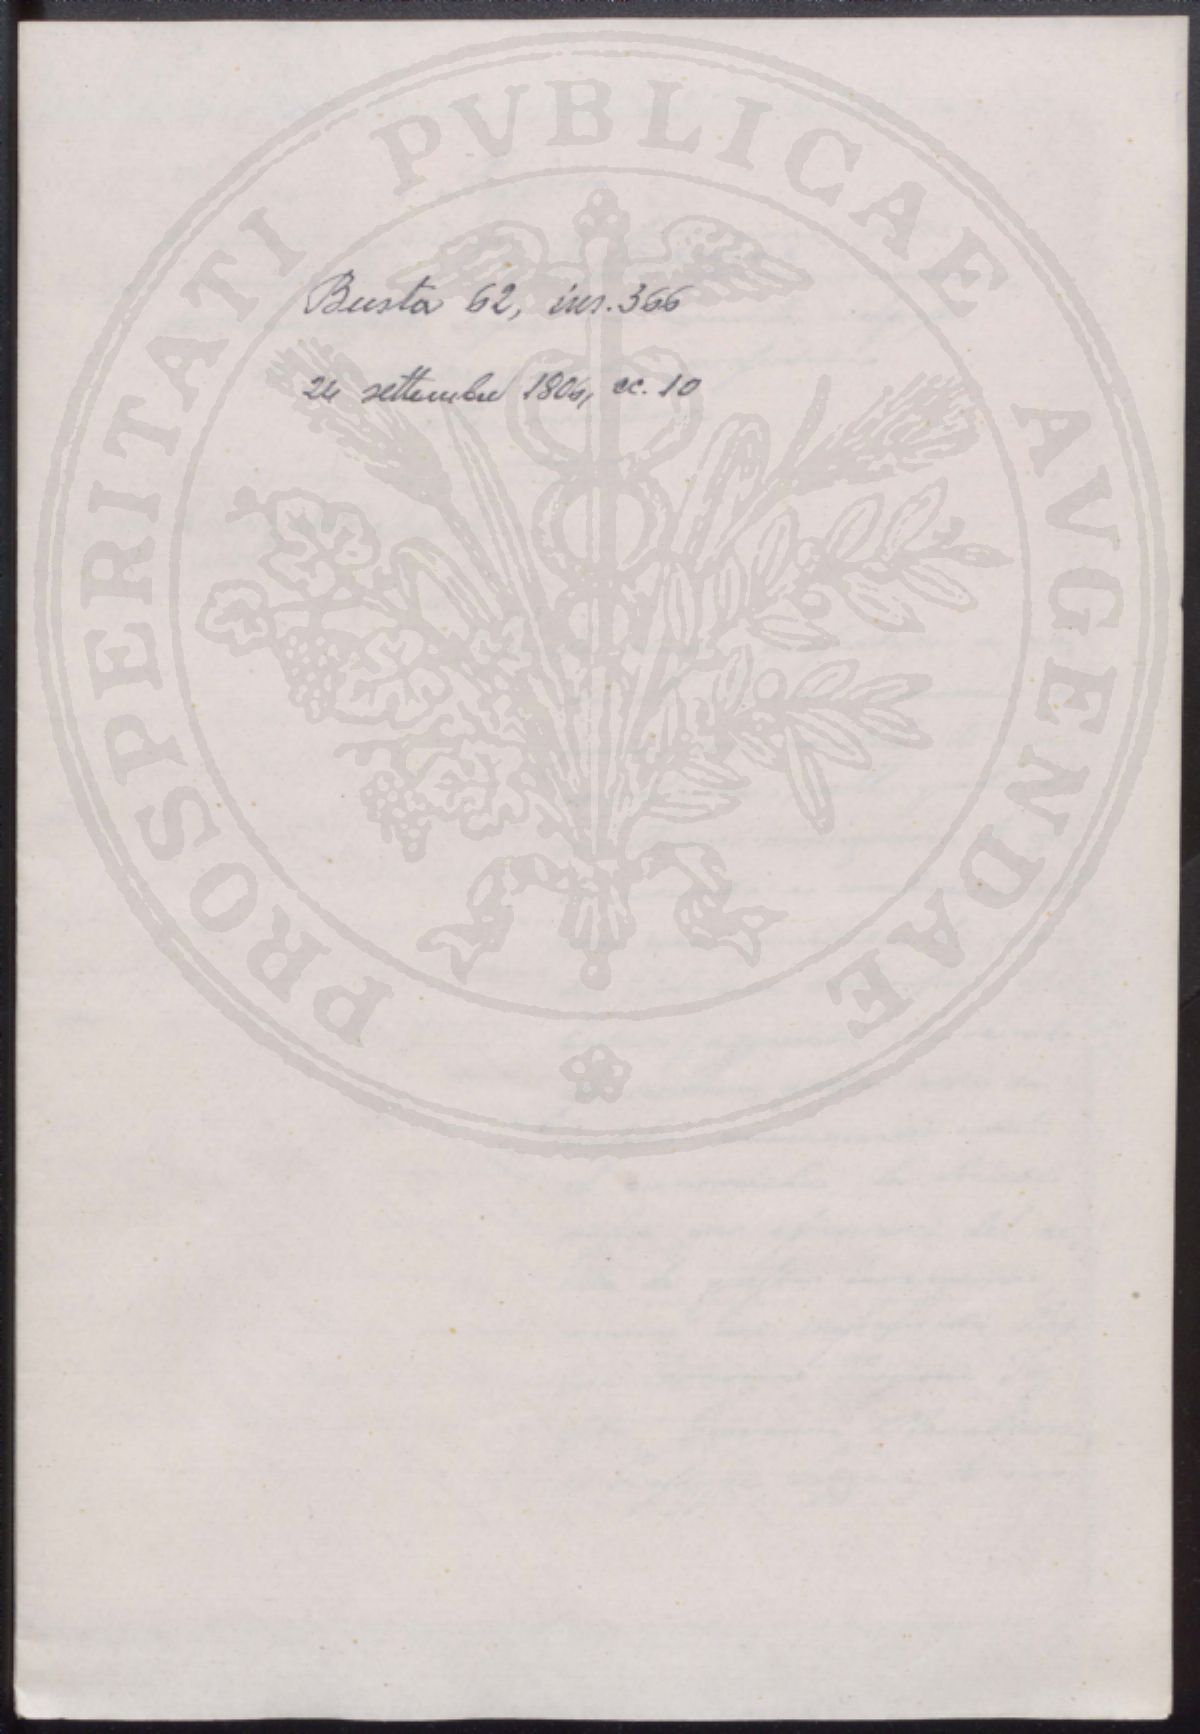 PROSPERITATI PVBLICAE AVGENDAE
Busta 62, ins. 366
24 settembre 1806, cc. 10